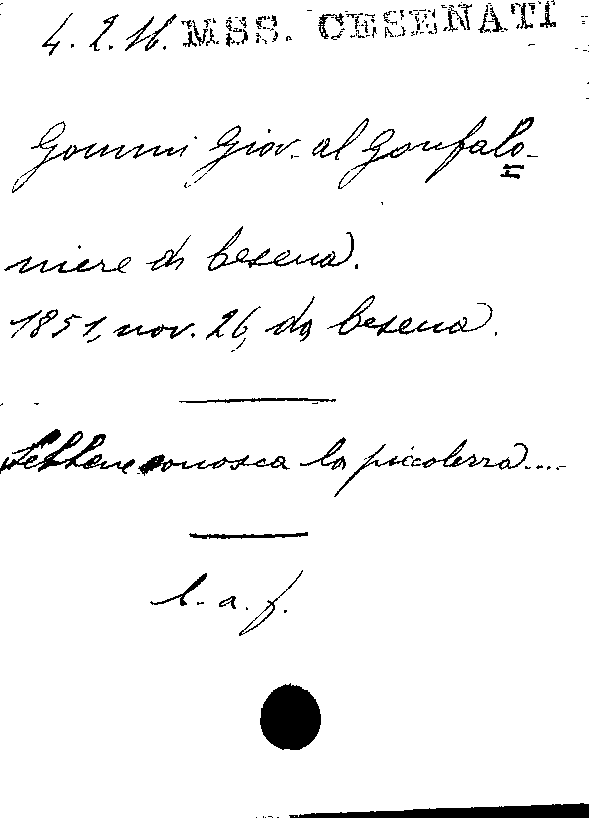 4.2.16. MSS. CESENATI
Gommi Giov. al Gonfalo-
niere di Cesena.
1851, nov. 26, da Cesena.
Sebbene conosca la piccolezza....
l. a. f.